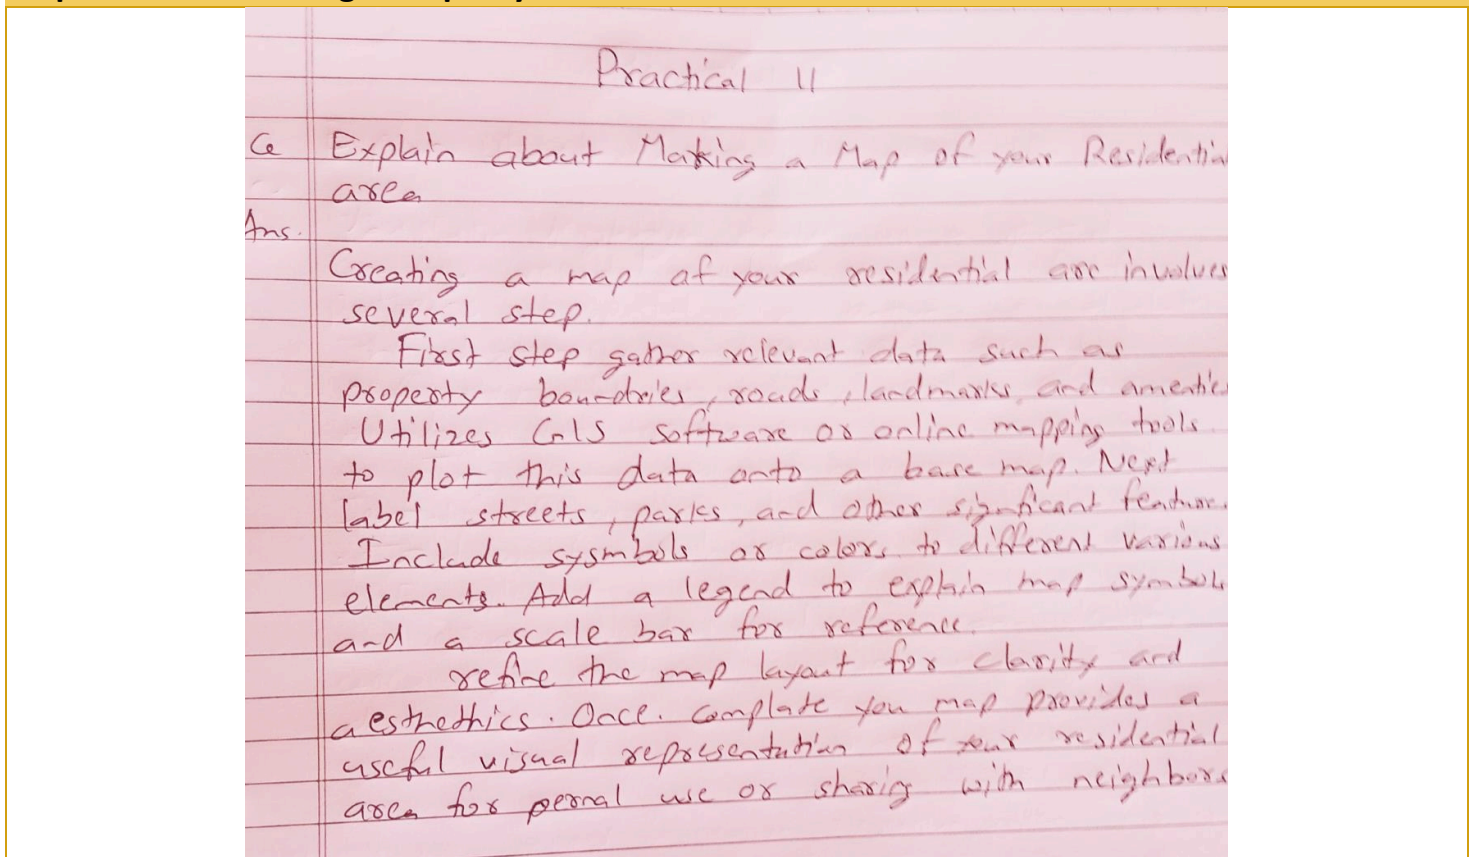 Practical 11
Q Explain about Making a Map of your Residentia
area
Ans.
Creating a map of your residential are involves
several step.
First step gather relevant data such as
property boundries, roads, landmarks, and amentie
Utilizes GIS software or online mapping tools
to plot this data onto a base map. Next
label streets, parks, and other signficant feature.
Include sysmbols or colors to different various
elements. Add a legend to explain map symbols
and a scale bar for reference.
refine the map layout for clarity and
aesthethics. Once. complate you map provides a
useful visual representation of your residential
area for pernal use or sharig with neighbors